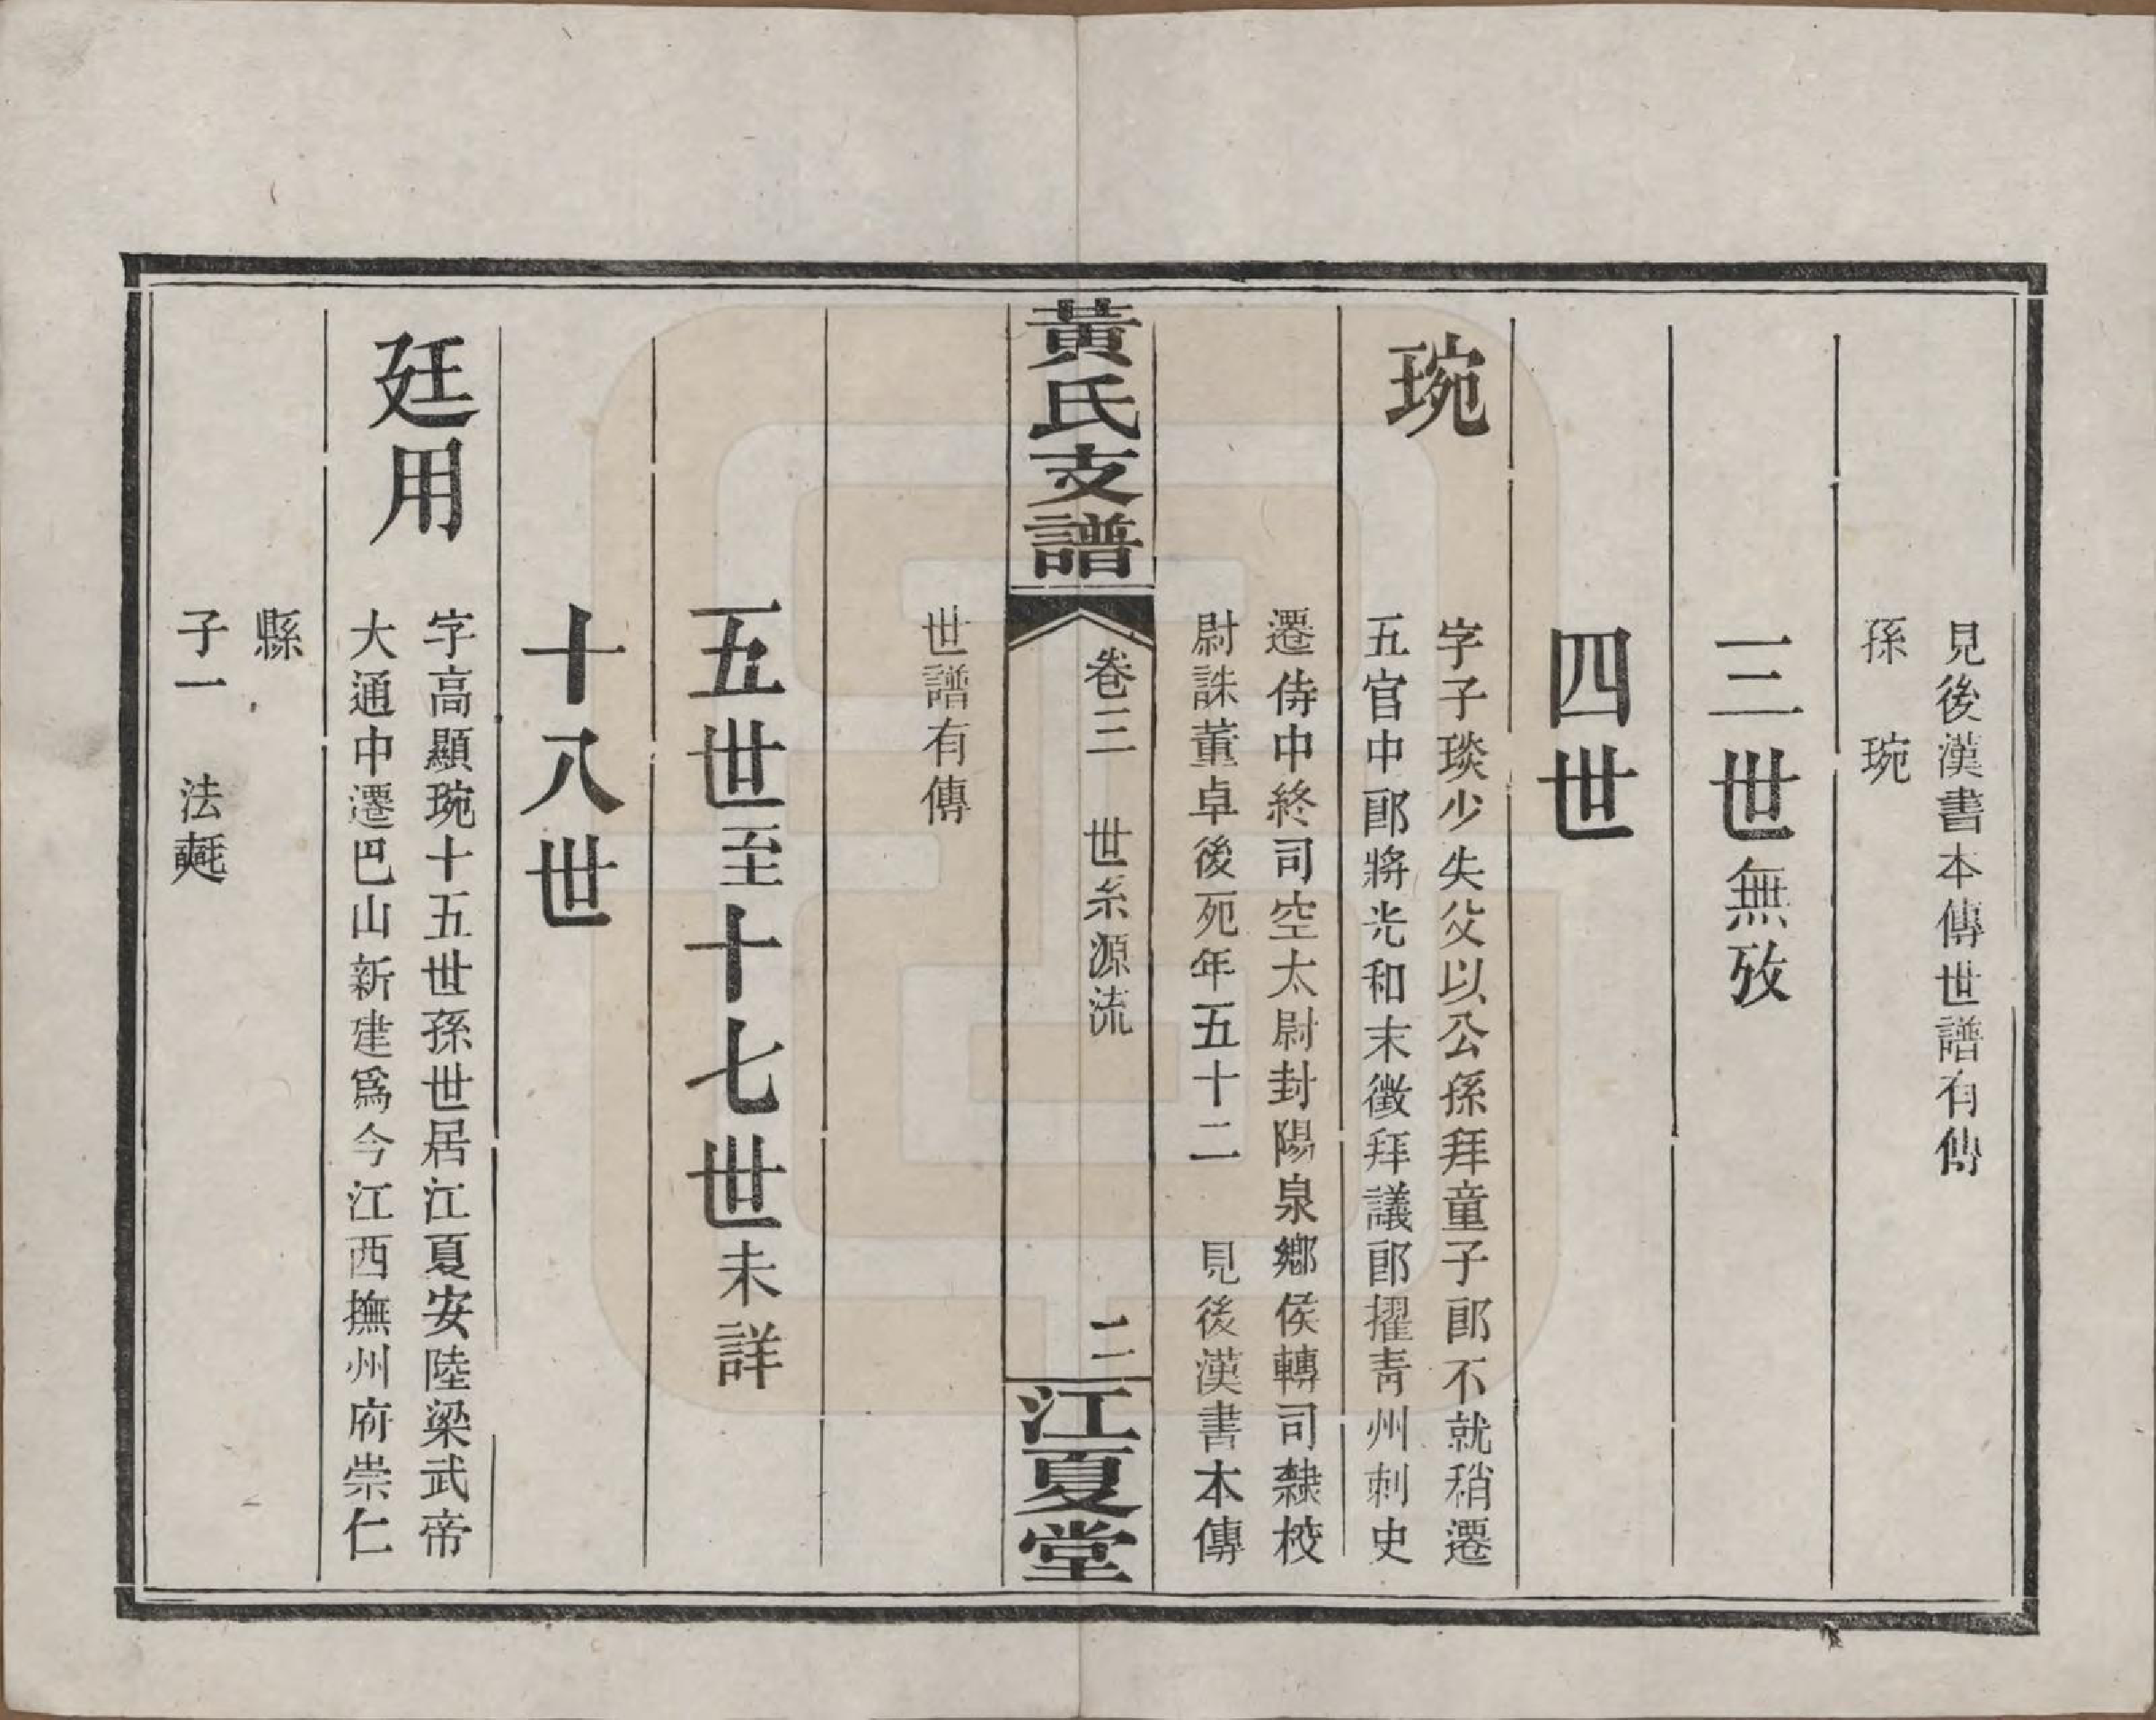 見後漢書本傳世譜有傳
孫　琬
三世無攷
四世
琬
字子琰少失父以公孫拜童子郎不就稍遷
五官中郎將光和末徵拜議郎擢青州刺史
遷侍中終司空太尉封陽泉鄉侯轉司隸校
尉誅董卓後死年五十二　見後漢書本傳
世譜有傳
黃氏支譜
卷三　世系源流
二
江夏堂
五世至十七世未詳
十八世
廷用
字高顯琬十五世孫世居江夏安陸梁武帝
大通中遷巴山新建爲今江西撫州府崇仁
縣
子一　法𣰰